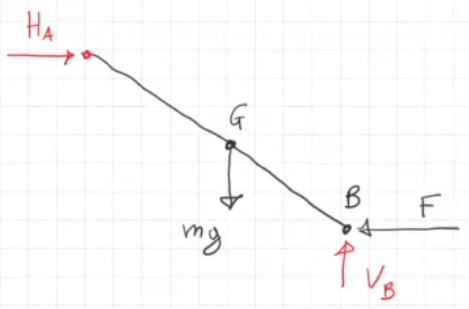 H_A
G
mg
B
F
V_B